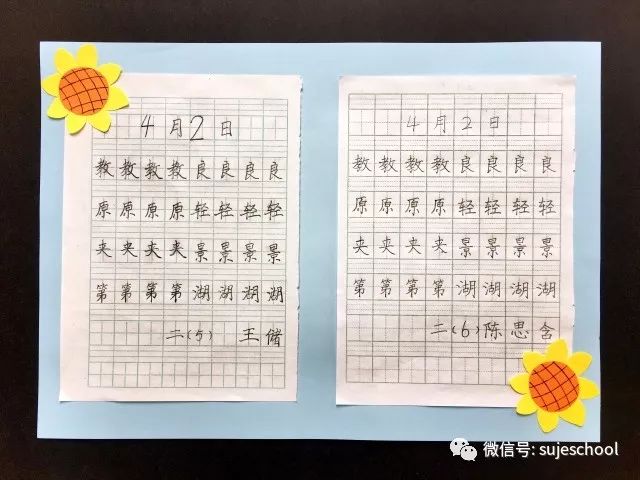 4月2日
教教教教良良良良
原原原原轻轻轻轻
夹夹夹夹景景景景
第第第第湖湖湖湖
二(5) 王储
4月2日
教教教教良良良良
原原原原轻轻轻轻
夹夹夹夹景景景景
第第第第湖湖湖湖
二(6)陈思含
微信号: sujeschool